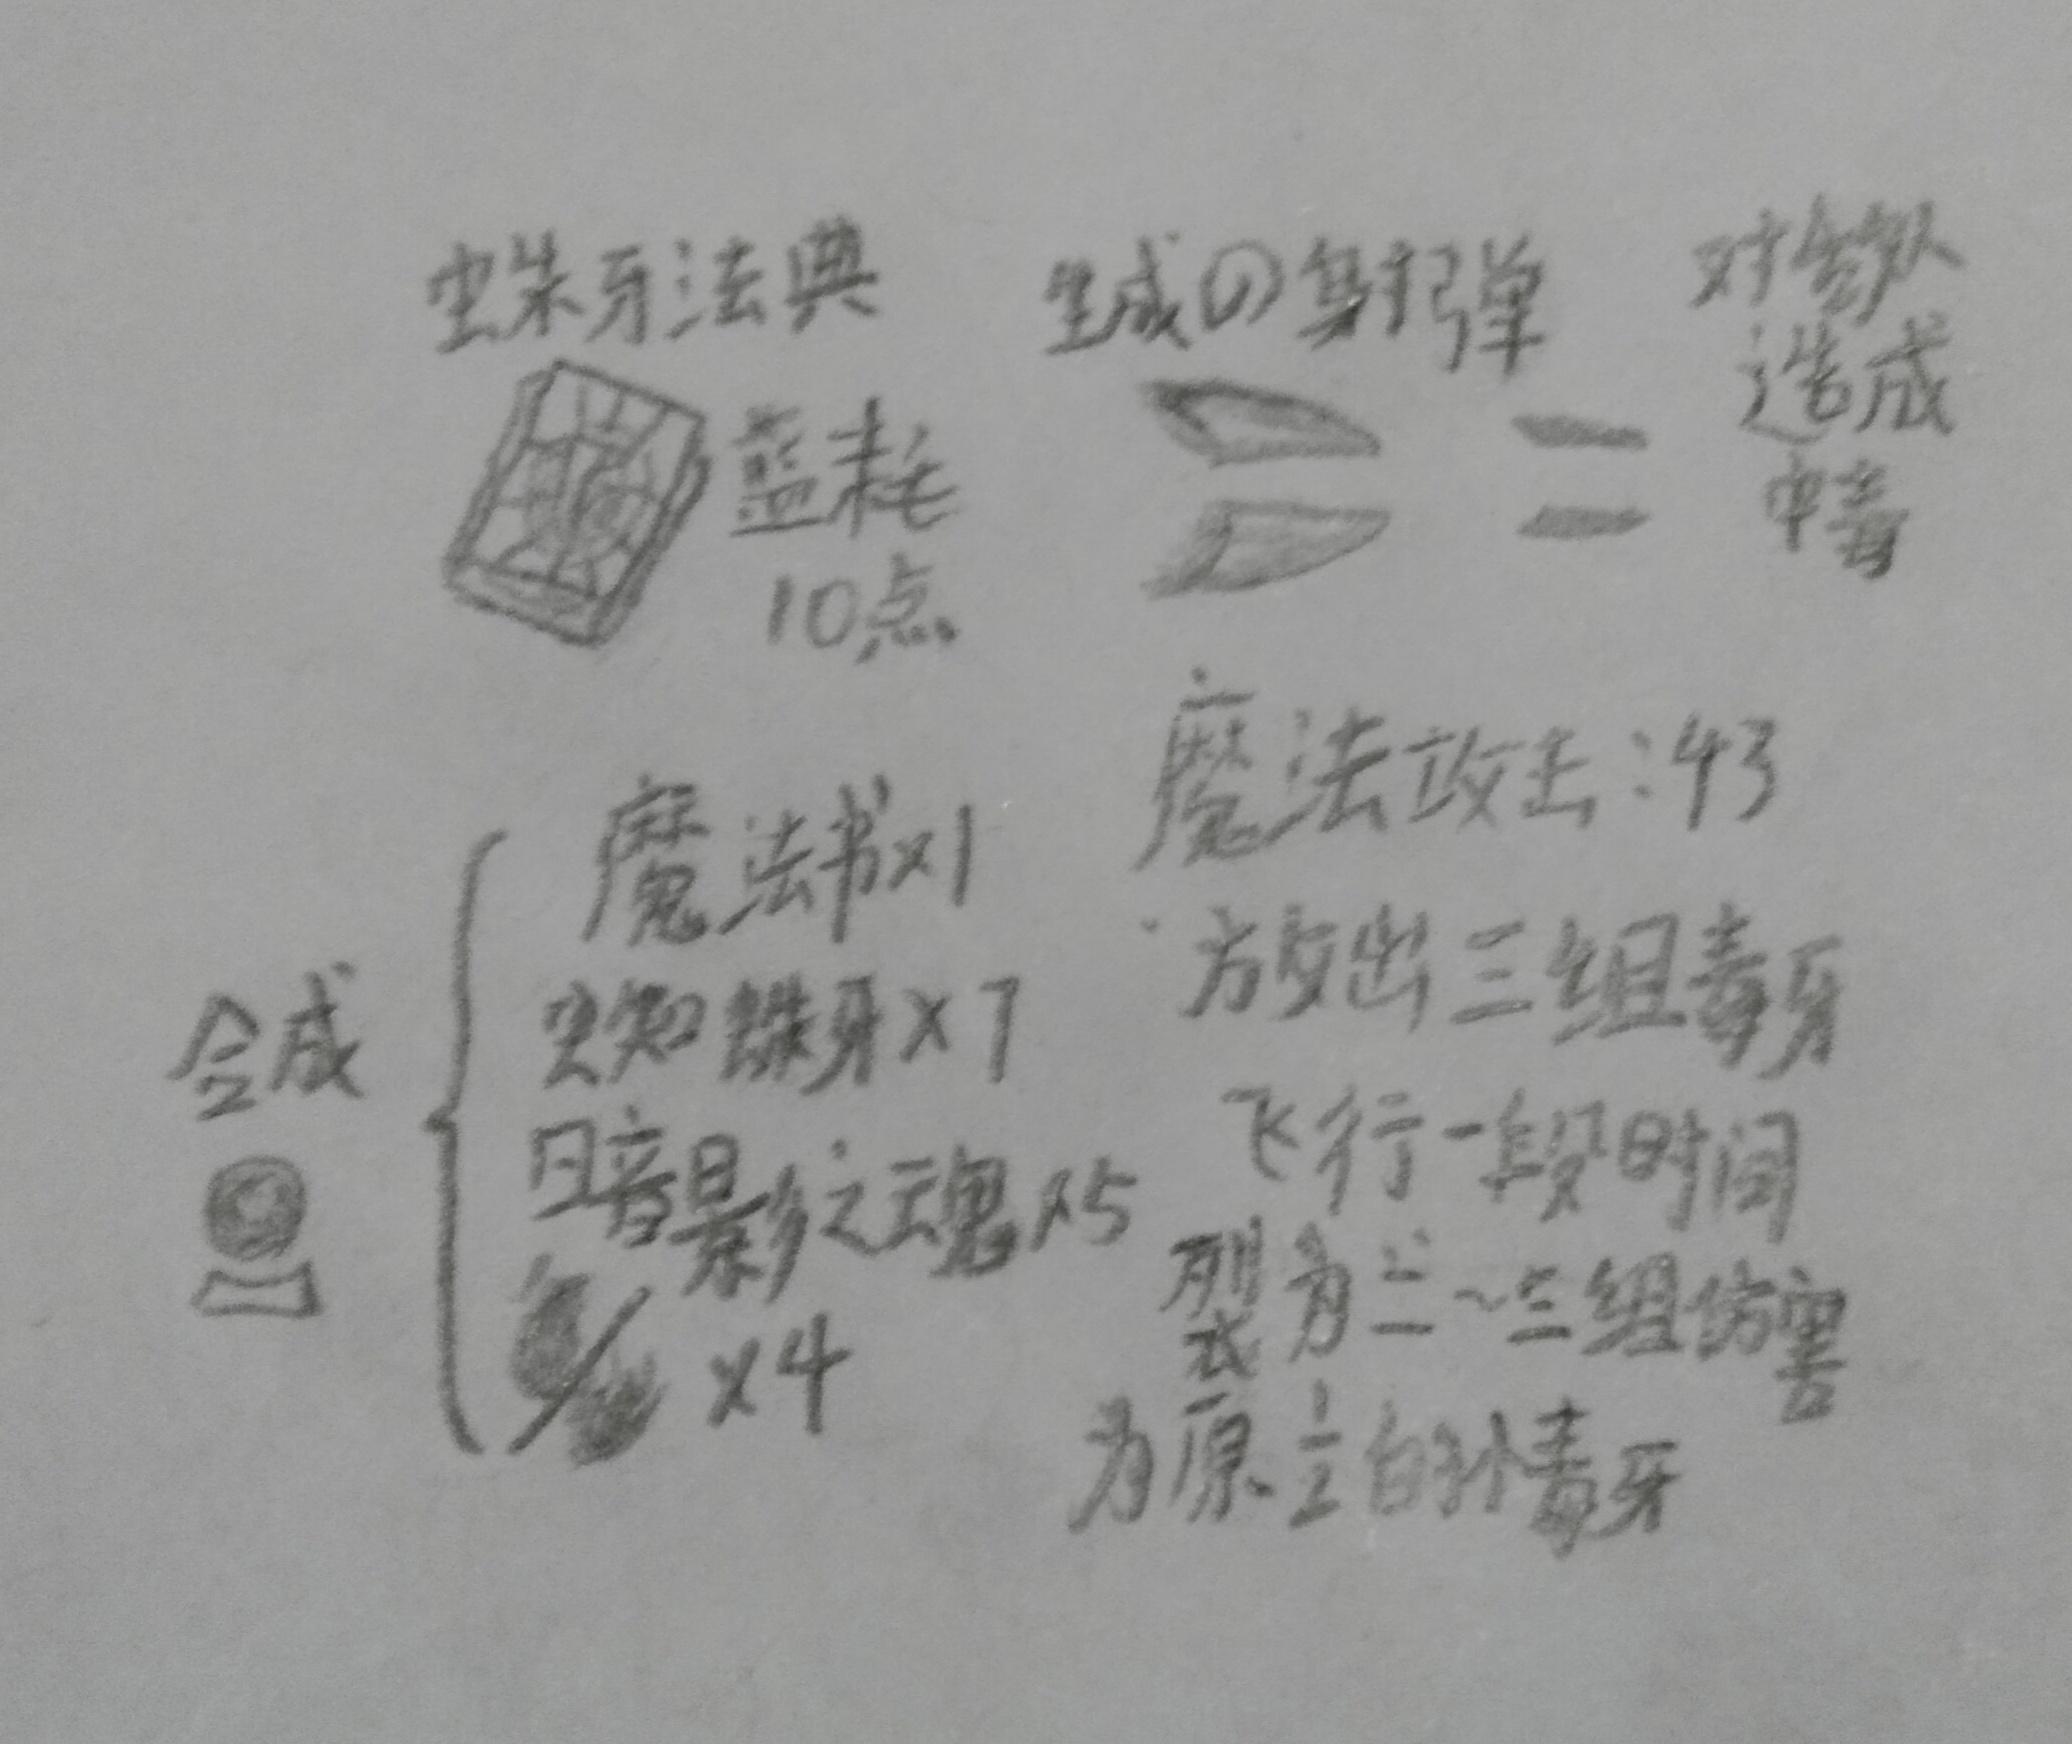 蛛牙法典
蓝耗
10点
生成の射弹
对敌人
造成
中毒
合成
魔法书x1
蜘蛛牙x7
暗影之魂x5
x4
魔法攻击:43
放出三组毒牙
飞行一段时间
裂为二~三组伤害
为原1/2的小毒牙